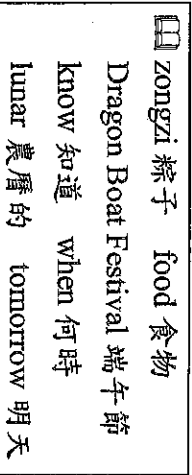 zongzi 粽子 food 食物
Dragon Boat Festival 端午節
know 知道 when 何時
lunar 農曆的 tomorrow 明天